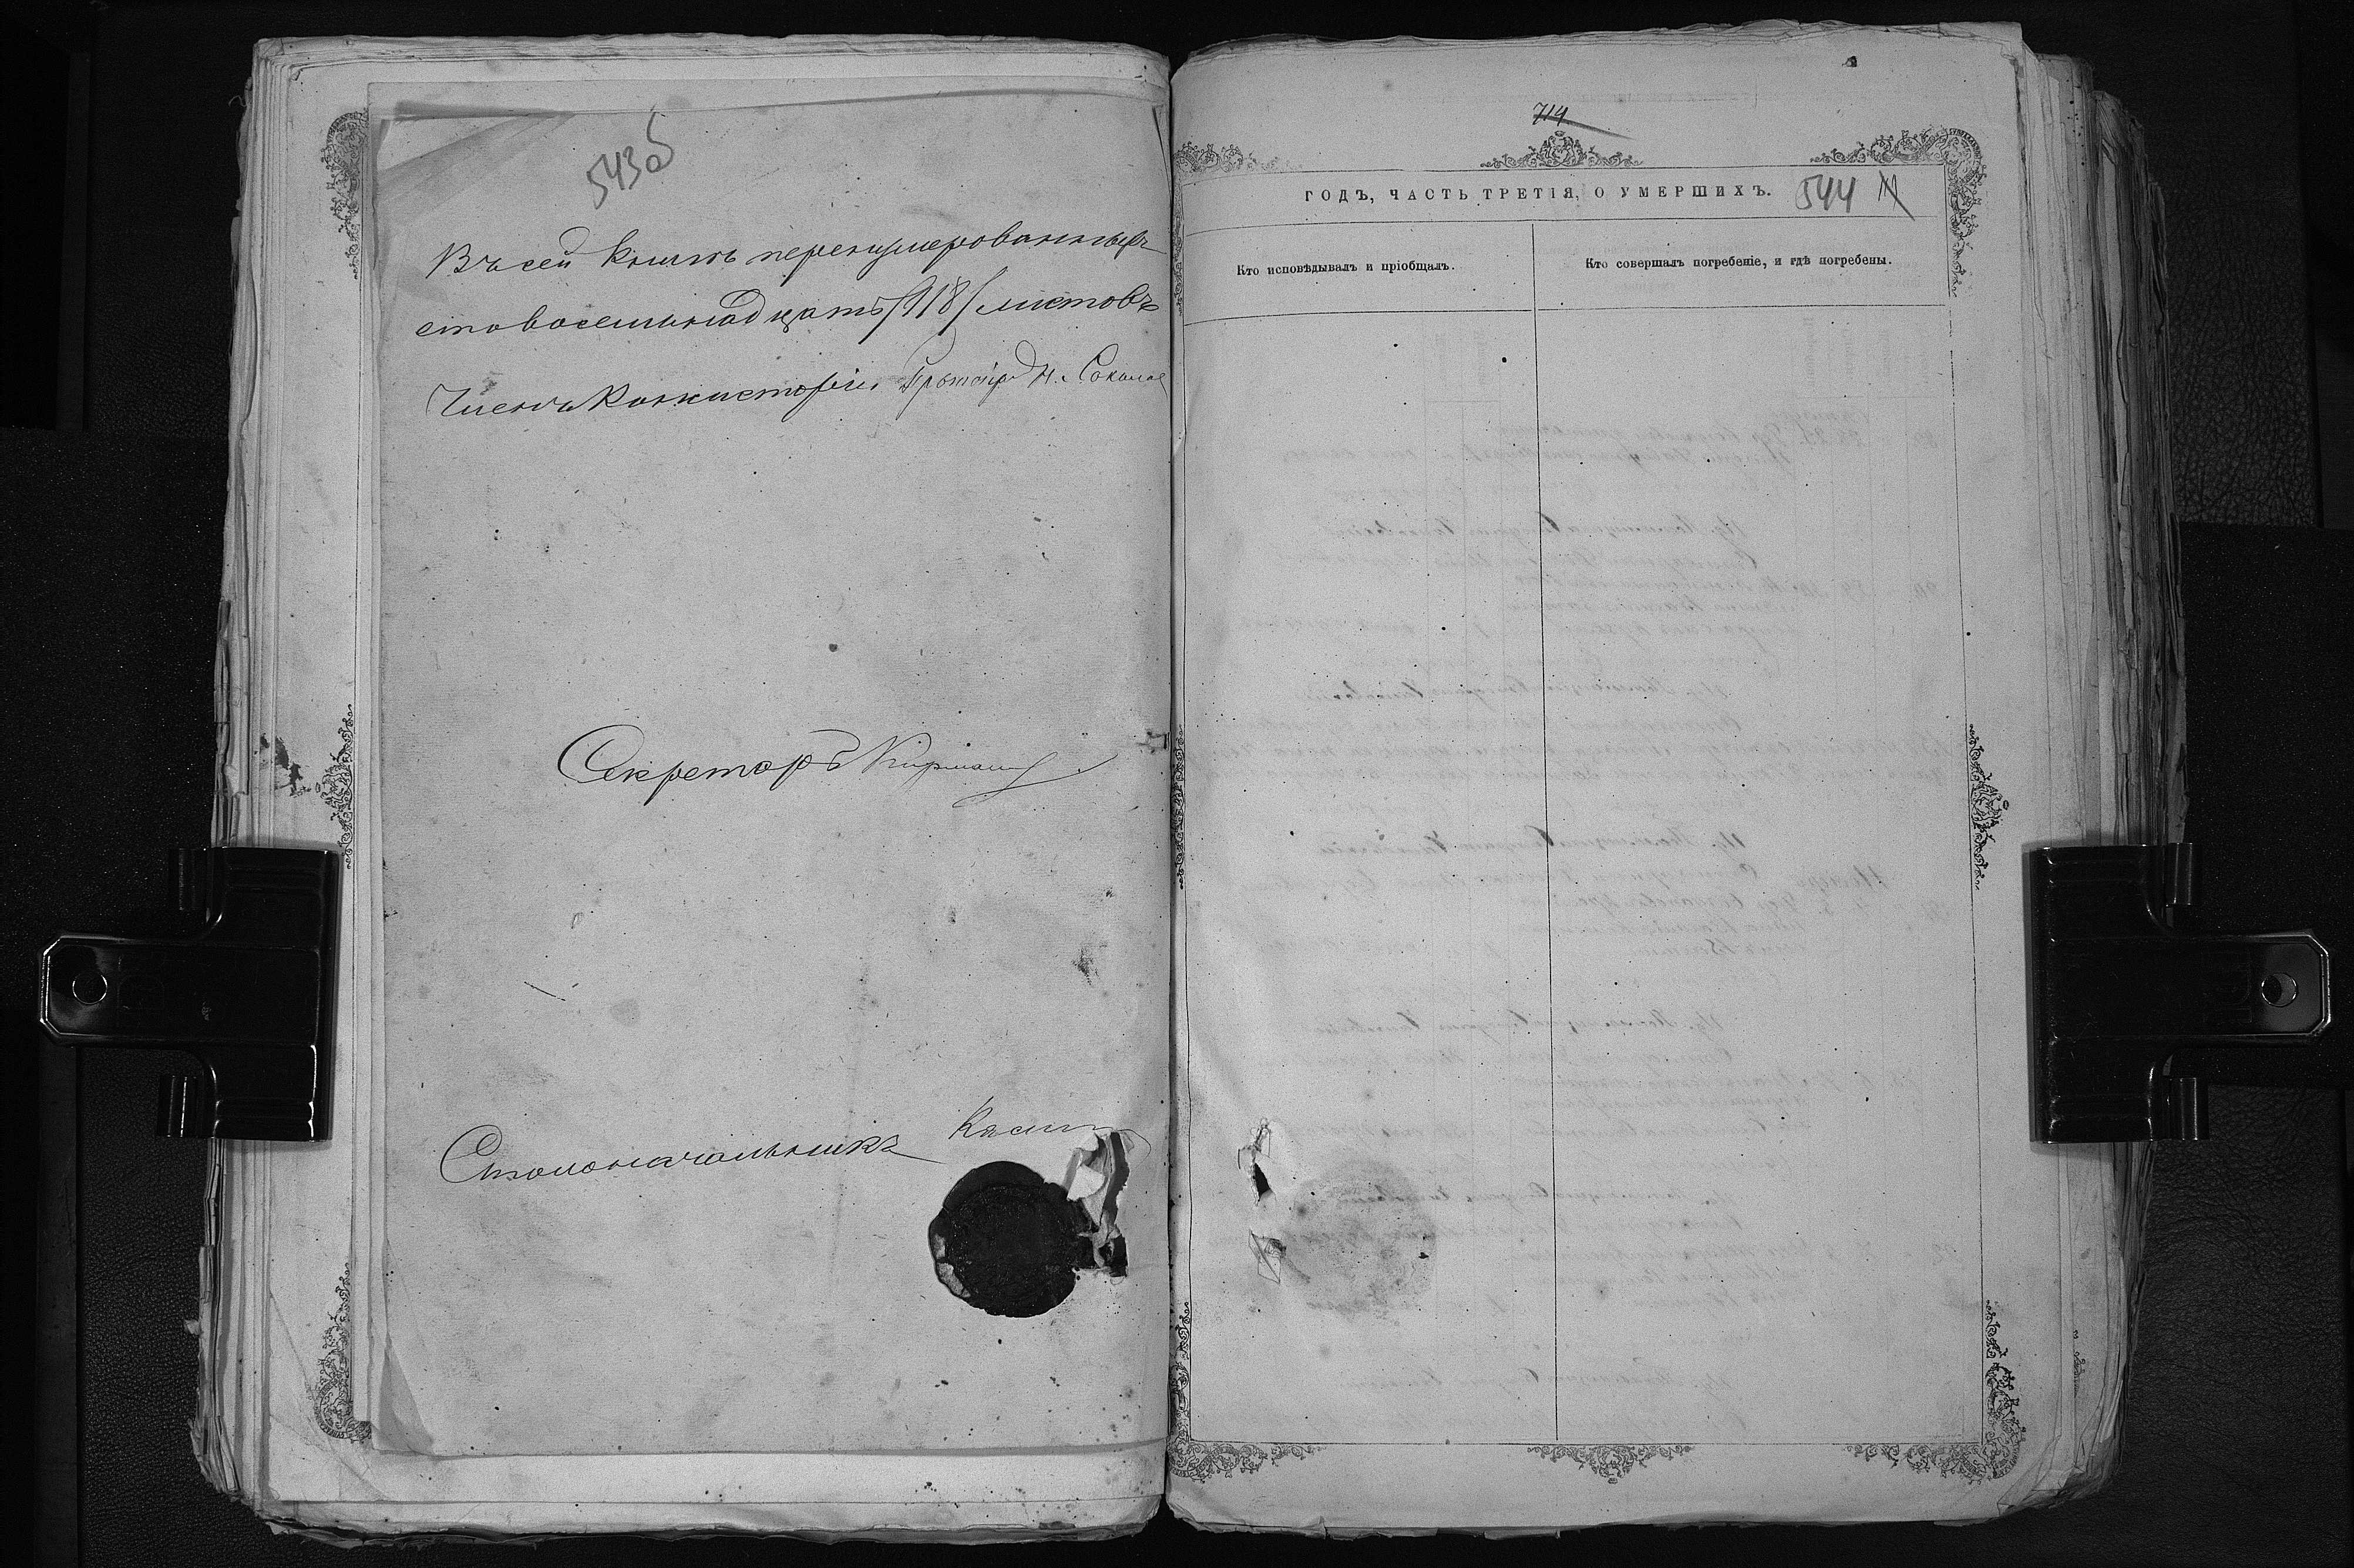 543об
Въ сей книгѣ перенумерованныхъ
сто восемнадцать /118/ листовъ
Членъ Консисторіи Протоіерей Н. Соколов
Секретарь
Столоначальникъ
714
ГОДЪ, ЧАСТЬ ТРЕТІЯ, О УМЕРШИХЪ. 544
Кто исповѣдывалъ и пріобщалъ.
Кто совершалъ погребеніе, и гдѣ погребены.